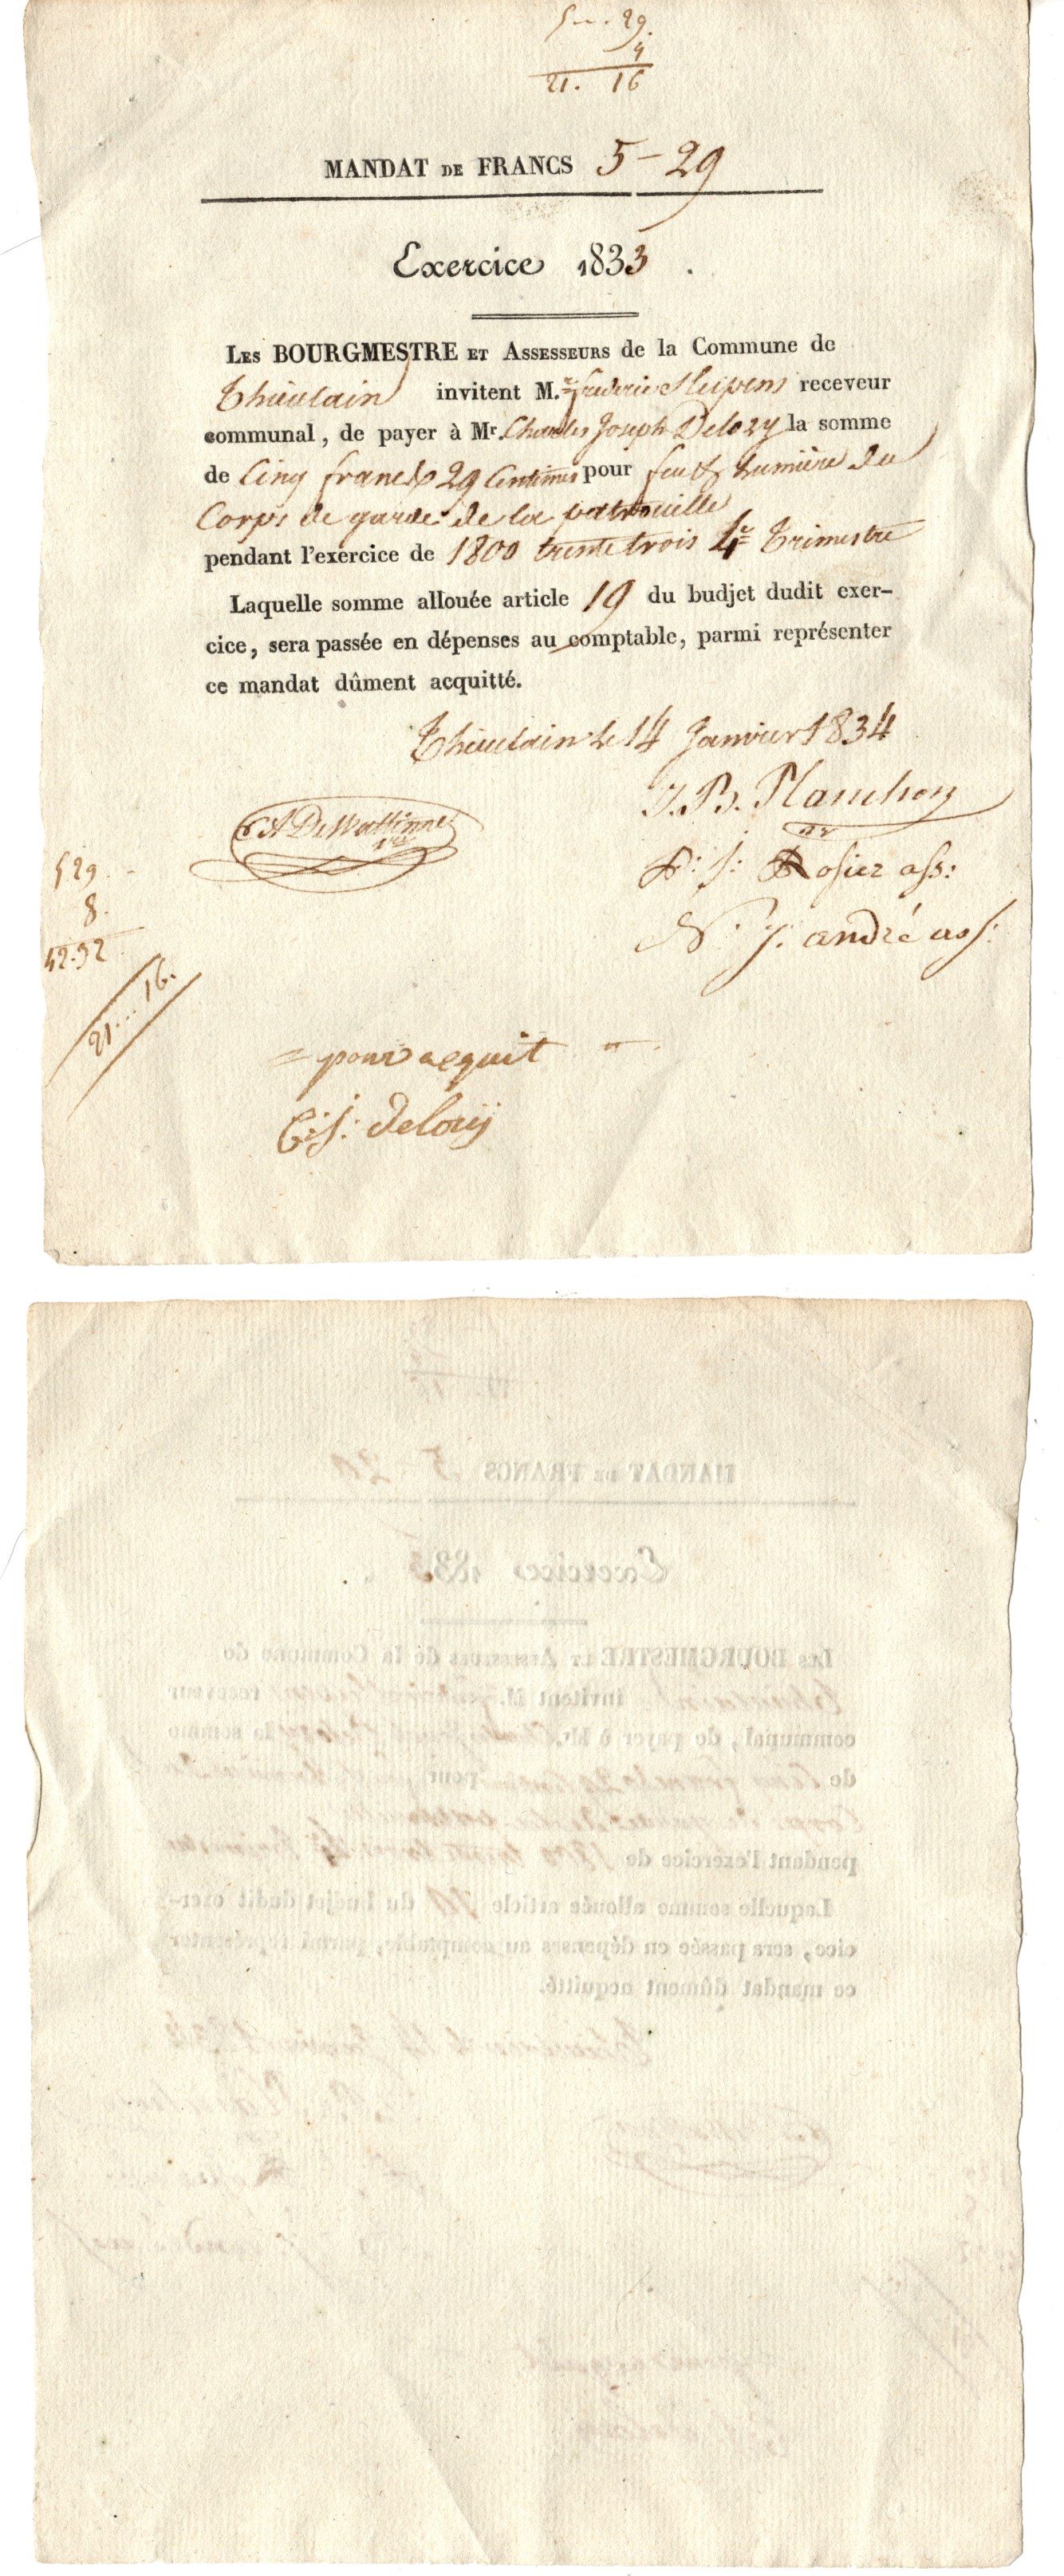 5 ... 29.
4
21. 16
MANDAT DE FRANCS 5 - 29
Exercice 1833.
LES BOURGMESTRE ET ASSESSEURS de la Commune de
Thieulain invitent M.r frederic receveur
communal, de payer à Mr. Charles Joseph Delozy la somme
de Cinq francs 29 Centimes pour feu & lumière du
Corps de garde de la patrouille
pendant l'exercice de 1800 trente trois 4e trimestre
Laquelle somme allouée article 19 du budjet dudit exer-
cice, sera passée en dépenses au comptable, parmi représenter
ce mandat dûment acquitté.
Thieulain le 14 Janvier 1834
J. B. Planchon
A DeWattinne
P: J: Rosier ass:
529
8.
42.32
N. J. andré ass:
21 ... 16.
= pour acquit =
C: J: delozij